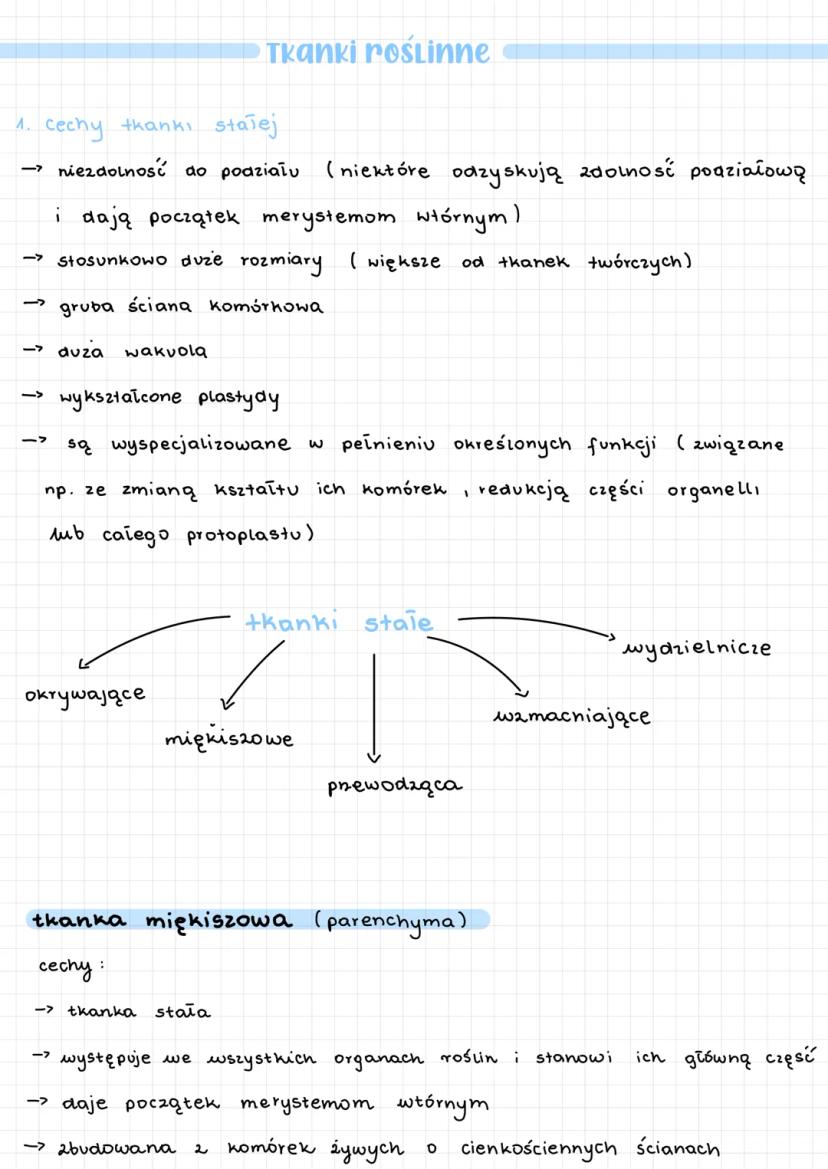 Tkanki roślinne
1. cechy tkanki stałej
→ niezdolność do podziału (niektóre odzyskują zdolność podziałową
i dają początek merystemom wtórnym)
→ stosunkowo duże rozmiary (większe od tkanek twórczych)
→ gruba ściana komórkowa
→ duża wakuola
→ wykształcone plastydy
→ są wyspecjalizowane w pełnieniu określonych funkcji (związane
np. ze zmianą kształtu ich komórek, redukcją części organelli
lub całego protoplastu)
tkanki stałe
wydzielnicze
okrywające
wzmacniające
miękiszowe
przewodząca
tkanka miękiszowa (parenchyma)
cechy:
→ tkanka stała
→ występuje we wszystkich organach roślin i stanowi ich główną część
→ daje początek merystemom wtórnym
→ zbudowana z komórek żywych o cienkościennych ścianach